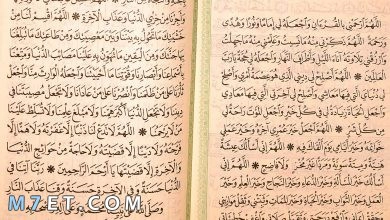 اللَّهُمَّ ارْحَمْنِي بِالْقُرْءَانِ وَاجْعَلْهُ لِي إِمَامًا وَنُورًا وَهُدًى
وَرَحْمَةً * اللَّهُمَّ ذَكِّرْنِي مِنْهُ مَا نَسِيتُ وَعَلِّمْنِي مِنْهُ مَا جَهِلْتُ
وَارْزُقْنِي تِلَاوَتَهُ آنَاءَ اللَّيْلِ وَأَطْرَافَ النَّهَارِ وَاجْعَلْهُ لِي حُجَّةً يَارَبَّ
الْعَالَمِينَ * اللَّهُمَّ أَصْلِحْ لِي دِينِي الَّذِي هُوَ عِصْمَةُ أَمْرِي وَأَصْلِحْ
لِي دُنْيَايَ الَّتِي فِيهَا مَعَاشِي وَأَصْلِحْ لِي آخِرَتِي الَّتِي فِيهَا مَعَادِي
وَاجْعَلِ الْحَيَاةَ زِيَادَةً لِي فِي كُلِّ خَيْرٍ وَاجْعَلِ الْمَوْتَ رَاحَةً لِي
مِنْ كُلِّ شَرٍّ * اللَّهُمَّ اجْعَلْ خَيْرَ عُمْرِي آخِرَهُ وَخَيْرَ عَمَلِي
خَوَاتِمَهُ وَخَيْرَ أَيَّامِي يَوْمَ أَلْقَاكَ فِيهِ * اللَّهُمَّ إِنِّي أَسْأَلُكَ عِيشَةً
هَنِيَّةً وَمِيتَةً سَوِيَّةً وَمَرَدًّا غَيْرَ مُخْزٍ وَلَا فَاضِحٍ * اللَّهُمَّ إِنِّي
أَسْأَلُكَ خَيْرَ الْمَسْأَلَةِ وَخَيْرَ الدُّعَاءِ وَخَيْرَ النَّجَاحِ وَخَيْرَ الْعِلْمِ
وَخَيْرَ الْعَمَلِ وَخَيْرَ الثَّوَابِ وَخَيْرَ الْحَيَاةِ
وَأَجِرْنَا مِنْ خِزْيِ الدُّنْيَا وَعَذَابِ الْآخِرَةِ * اللَّهُمَّ اقْسِمْ لَنَا مِنْ
خَشْيَتِكَ مَا تَحُولُ بِهِ بَيْنَنَا وَبَيْنَ مَعْصِيَتِكَ وَمِنْ طَاعَتِكَ مَا تُبَلِّغُنَا
بِهَا جَنَّتَكَ وَمِنَ الْيَقِينِ مَا تُهَوِّنُ بِهِ عَلَيْنَا مَصَائِبَ الدُّنْيَا وَمَتِّعْنَا
بِأَسْمَاعِنَا وَأَبْصَارِنَا وَقُوَّتِنَا مَا أَحْيَيْتَنَا وَاجْعَلْهُ الْوَارِثَ مِنَّا وَاجْعَلْ
ثَأْرَنَا عَلَى مَنْ ظَلَمَنَا وَانْصُرْنَا عَلَى مَنْ عَادَانَا وَلَا تَجْعَلْ مُصِيبَتَنَا فِي
دِينِنَا وَلَا تَجْعَلِ الدُّنْيَا أَكْبَرَ هَمِّنَا وَلَا مَبْلَغَ عِلْمِنَا وَلَا تُسَلِّطْ عَلَيْنَا
مَنْ لَا يَرْحَمُنَا * اللَّهُمَّ لَا تَدَعْ لَنَا ذَنْبًا إِلَّا غَفَرْتَهُ وَلَا هَمًّا إِلَّا
فَرَّجْتَهُ وَلَا دَيْنًا إِلَّا قَضَيْتَهُ وَلَا حَاجَةً مِنْ حَوَائِجِ الدُّنْيَا
وَالْآخِرَةِ إِلَّا قَضَيْتَهَا يَا أَرْحَمَ الرَّاحِمِينَ * رَبَّنَا آتِنَا فِي
الدُّنْيَا حَسَنَةً وَفِي الْآخِرَةِ حَسَنَةً وَقِنَا عَذَابَ النَّارِ
MZET.COM